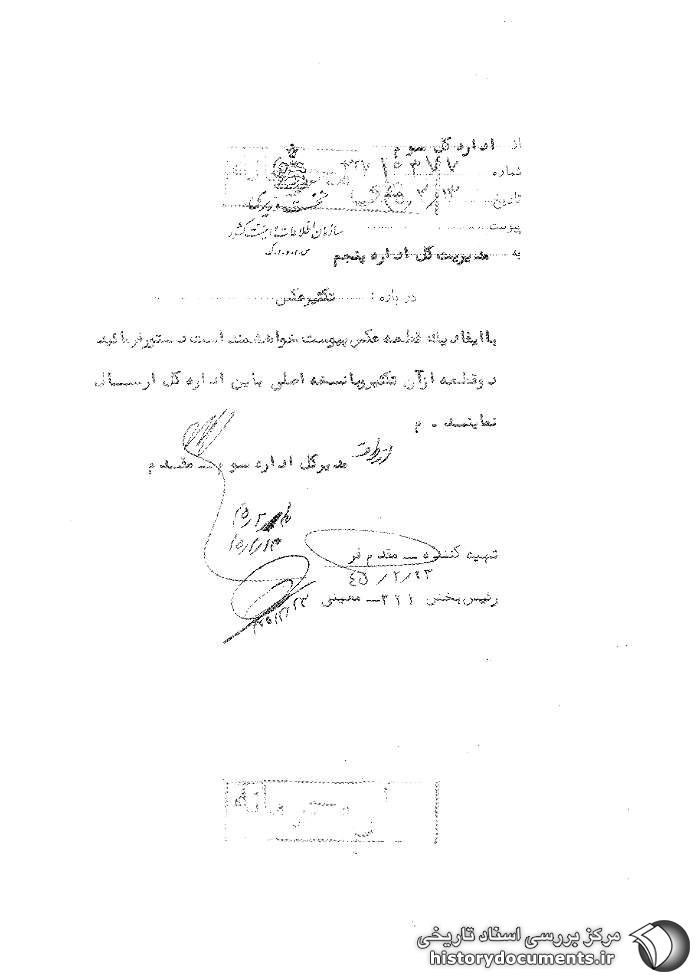 از اداره کل سوم
شماره ۳۲۱/۵۳۷۷
تاریخ
نخست وزیری
پیوست
سازمان اطلاعات و امنیت کشور
س.ا.و.ا.ک
به مدیریت کل اداره پنجم
درباره : تکثیر عکس
با ایفاد یک قطعه عکس پیوست خواهشمند است دستور فرمائید
دو قطعه از آن تکثیر و با نسخه اصلی باین اداره کل ارسال
نمایند . م
مدیرکل اداره سوم ـ مقدم
تهیه کننده ـ مقدم فر
۴۵/۲/۲۳
رئیس بخش ۳۲۱ ـ معینی
محرمانه
مرکز بررسی اسناد تاریخی
historydocuments.ir